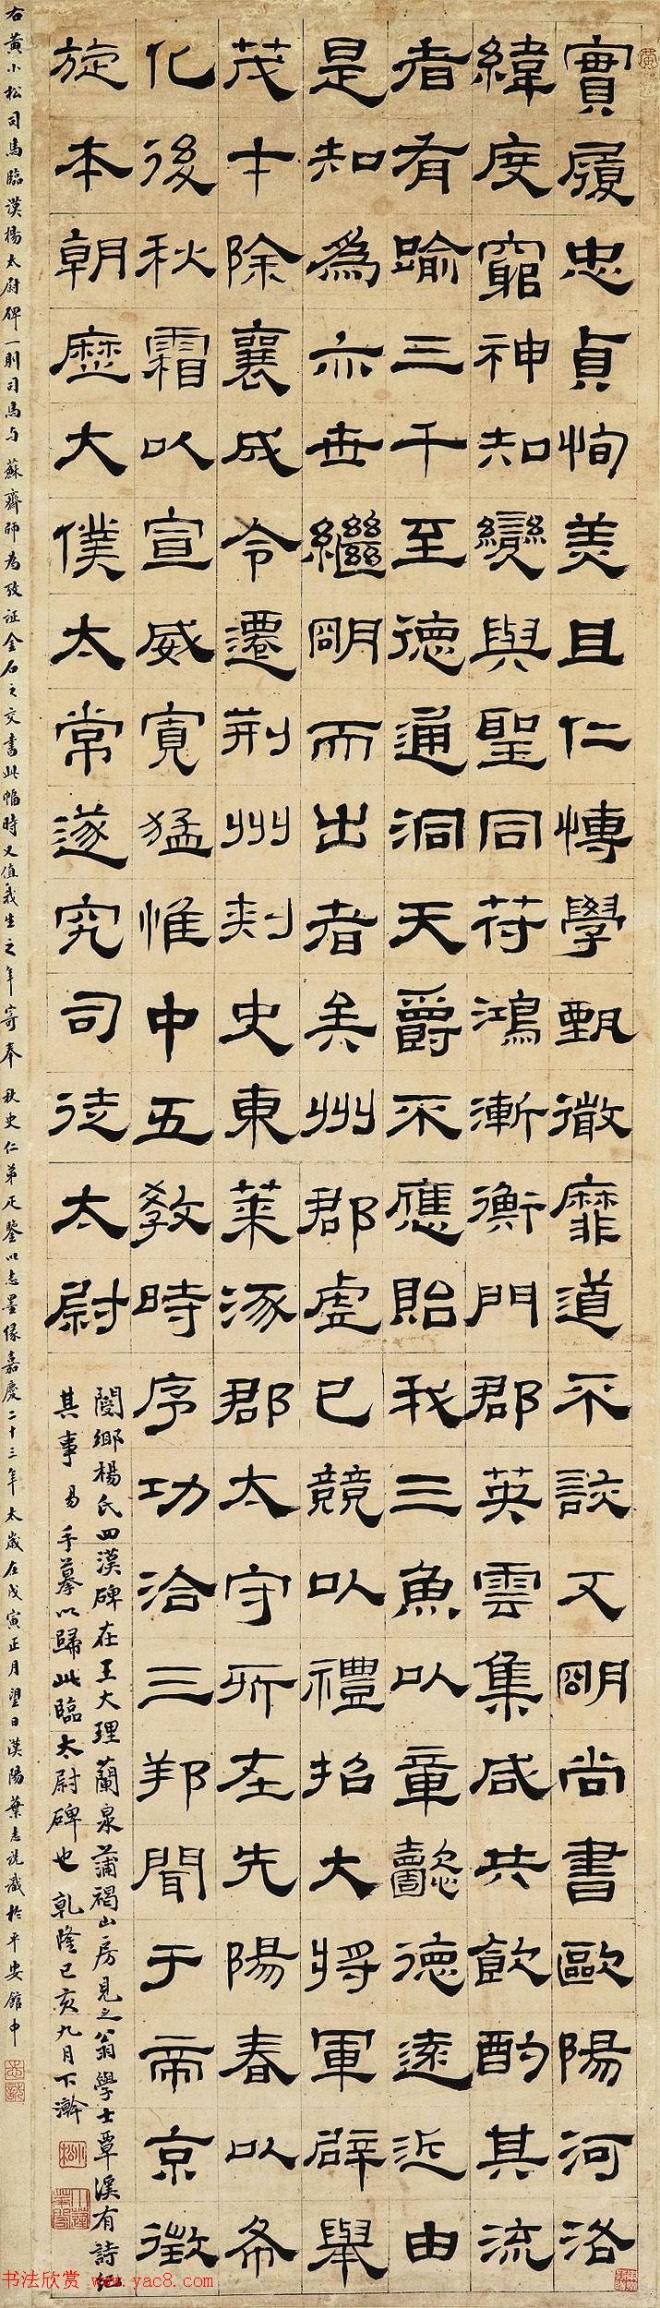 實履忠貞恂美且仁博學甄微靡道不該又明尚書歐陽河洛
緯度窮神知變與聖同苻鴻漸衡門郡英雲集咸共飲酌其流
者有踰三千至德通洞天爵不應貽我三魚以章懿德遠近由
是知為亦世繼明而出者矣州郡虛己競以禮招大將軍辟舉
茂才除襄成令遷荊州刺史東萊涿郡太守所在先陽春以布
化後秋霜以宣威寬猛惟中五教時序功洽三邦聞于帝京徵
旋本朝歷大僕太常遂究司徒太尉
閿鄉楊氏四漢碑在王大理蘭泉蒲褐山房見之翁學士覃溪有詩紀
其事易手摹以歸此臨太尉碑也乾隆己亥九月下澣
右黃小松司馬臨漢楊太尉碑一則司馬與蘇齋師為攷証金石之交書此幅時又值我生之年寄奉秋史仁弟正鑒以志墨緣嘉慶二十三年太歲在戊寅正月望日漢陽葉志詵識於平安館中
书法欣赏 www.yac8.com